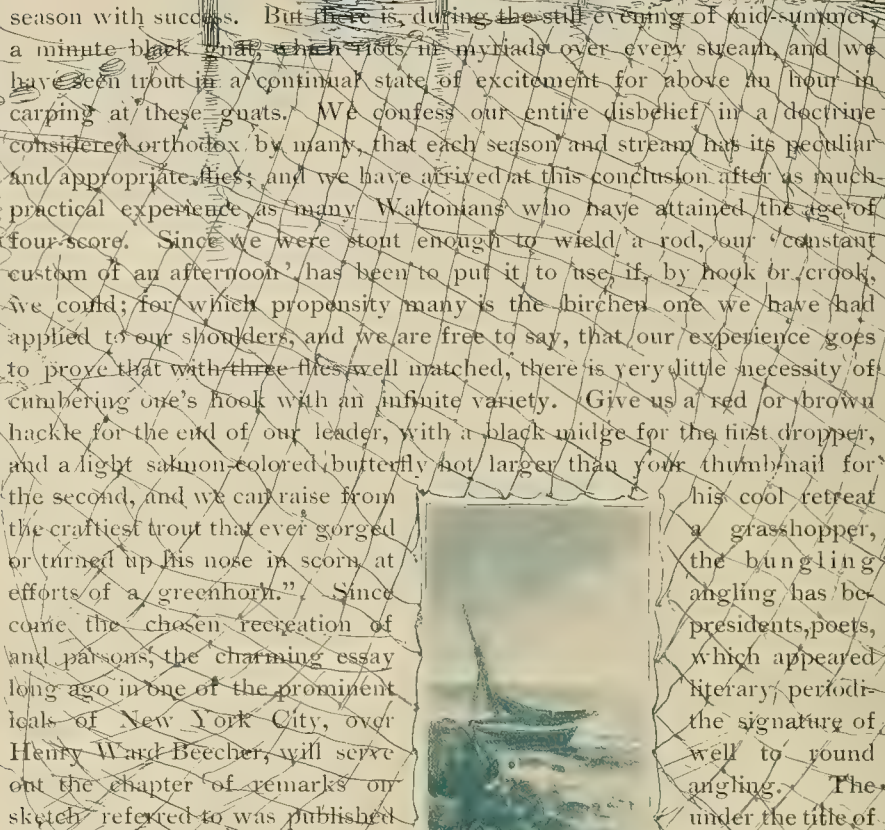 season with success. But there is, during the still evening of mid-summer,
a minute black gnat, which riots in myriads over every stream, and we
have seen trout in a continual state of excitement for above an hour in
carping at these gnats. We confess our entire disbelief in a doctrine
considered orthodox by many, that each season and stream has its peculiar
and appropriate flies; and we have arrived at this conclusion after as much
practical experience as many Waltonians who have attained the age of
four-score. Since we were stout enough to wield a rod, our 'constant
custom of an afternoon' has been to put it to use, if, by hook or crook,
we could; for which propensity many is the birchen one we have had
applied to our shoulders, and we are free to say, that our experience goes
to prove that with three flies well matched, there is very little necessity of
cumbering one's hook with an infinite variety. Give us a red or brown
hackle for the end of our leader, with a black midge for the first dropper,
and a light salmon-colored butterfly not larger than your thumb-nail for
the second, and we can raise from his cool retreat
the craftiest trout that ever gorged a grasshopper,
or turned up his nose in scorn at the bungling
efforts of a greenhorn." Since angling has be-
come the chosen recreation of presidents, poets,
and parsons, the charming essay which appeared
long ago in one of the prominent literary periodi-
icals of New York City, over the signature of
Henry Ward Beecher, will serve well to round
out the chapter of remarks on angling. The
sketch referred to was published under the title of